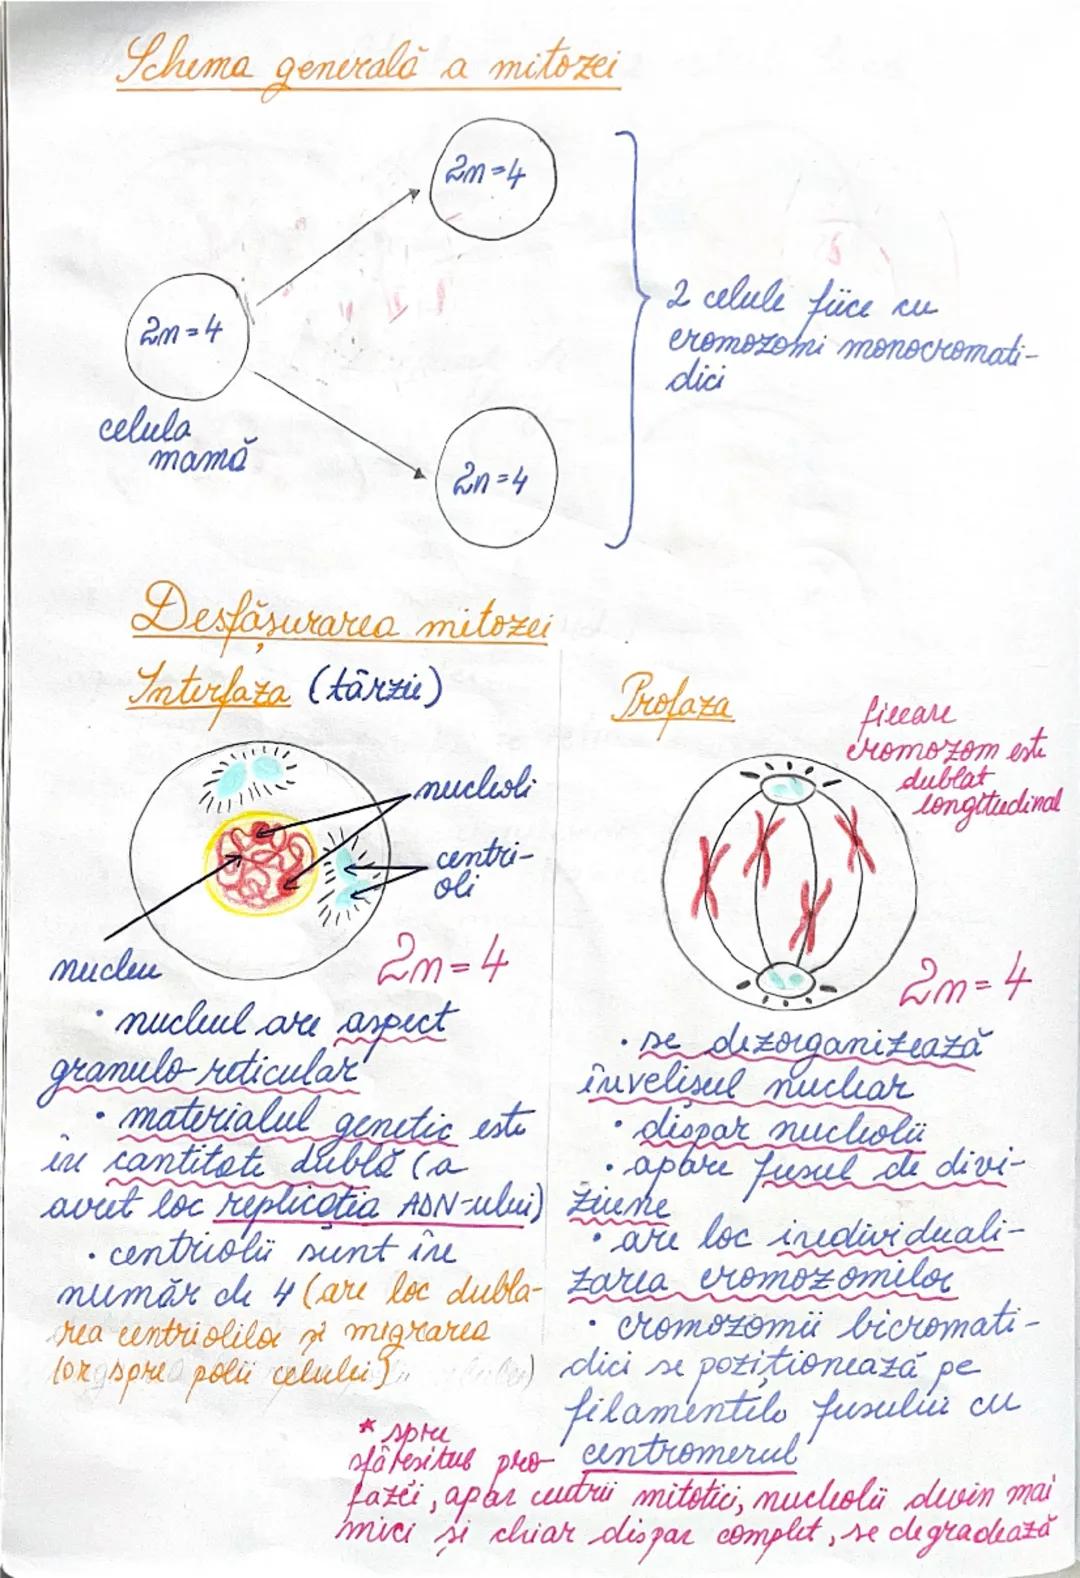 Schema generală a mitozei
2n=4
2n=4
2 celule fiice cu
cromozomi monocromati-
dici
celula
mamă
2n=4
Desfășurarea mitozei
Interfaza (târzie)
nucleoli
centri-
oli
nucleu
2n=4
• nucleul are aspect
granulo-reticular
• materialul genetic este
în cantitate dublă (a
avut loc replicația ADN-ului)
• centriolii sunt în
număr de 4 (are loc dubla-
rea centriolilor și migrarea
lor spre polii celulei)
Profaza
fiecare
cromozom este
dublat
longitudinal
2n=4
• se dezorganizează
învelișul nuclear
• dispar nucleolii
• apare fusul de divi-
ziune
• are loc individuali-
zarea cromozomilor
• cromozomii bicromati-
dici se poziționează pe
filamentele fusului cu
centromerul
* spre
sfârșitul pro-
fazei, apar centrii mitotici, nucleolii devin mai
mici și chiar dispar complet, se degradează